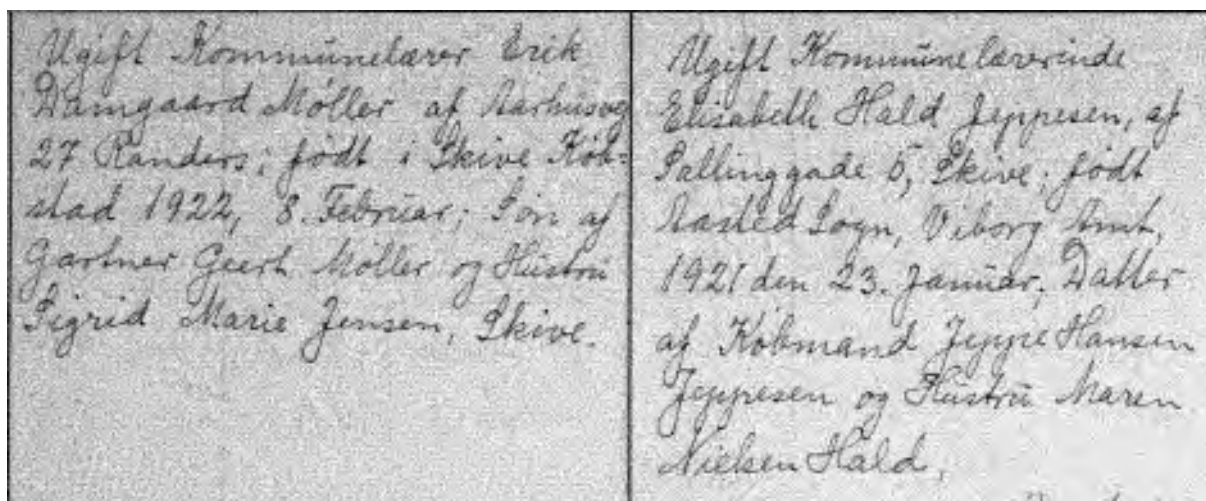 Ugift Kommunelærer Erik
Damgaard Møller af Aarhusvej
27 Randers; født i Skive Køb=
stad 1922, 8. Februar; Søn af
Gartner Geert Møller og Hustru
Sigrid Marie Jensen, Skive.
Ugift Kommunelærerinde
Elisabeth Hald Jeppesen, af
Sallinggade 5, Skive; født
Aasted Sogn, Viborg Amt,
1921 den 23. Januar; Datter
af Købmand Jeppe Hansen
Jeppesen og Hustru Maren
Nielsen Hald,